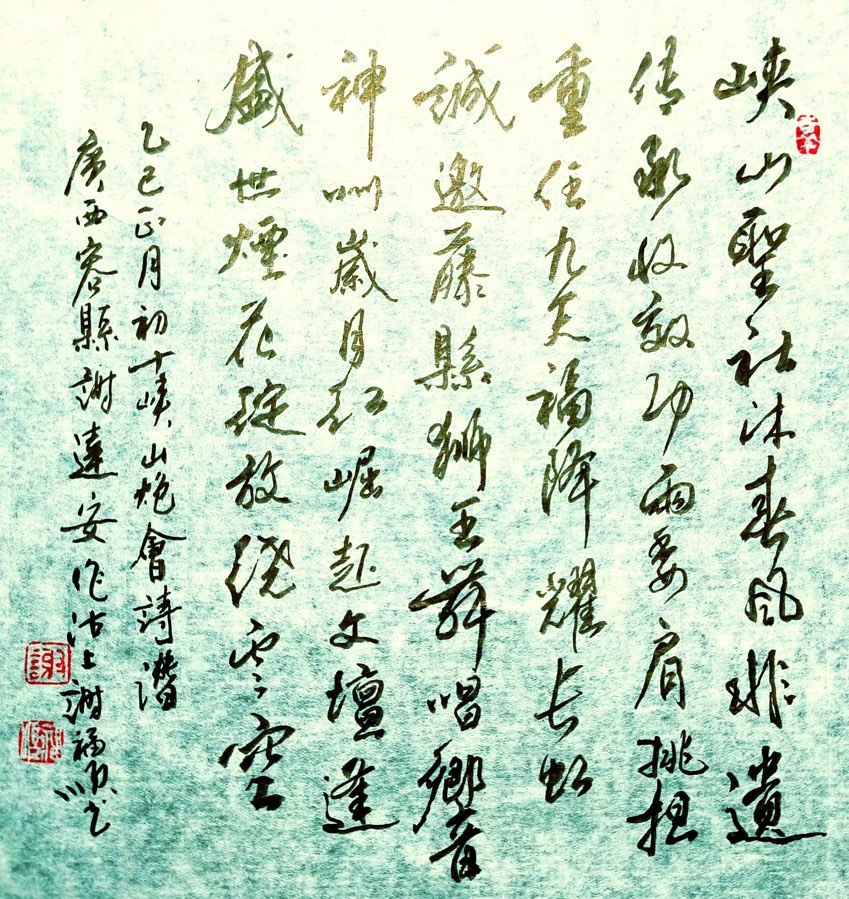 峡山聖社沐春风非遺
传承收效功兩委肩挑担
重任九天福降耀长虹
誠邀藤縣狮王舞唱響
神州歲月红崛起文壇逢
盛世煙花绽放绕雲空
乙巳正月初十峡山炮會詩潜
廣西容縣謝達安作沽上謝福順书
謝